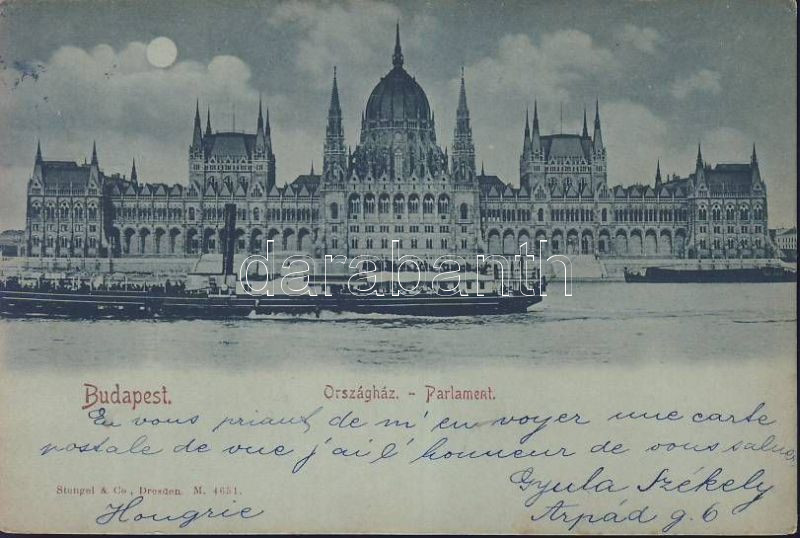 darabanth
Budapest.
Országház. - Parlament.
En vous priant de m'envoyer une carte
postale de vue j'ai l'honneur de vous saluer
Stengel & Co., Dresden. M. 4651.
Gyula Székely
Hongrie
Árpád g. 6